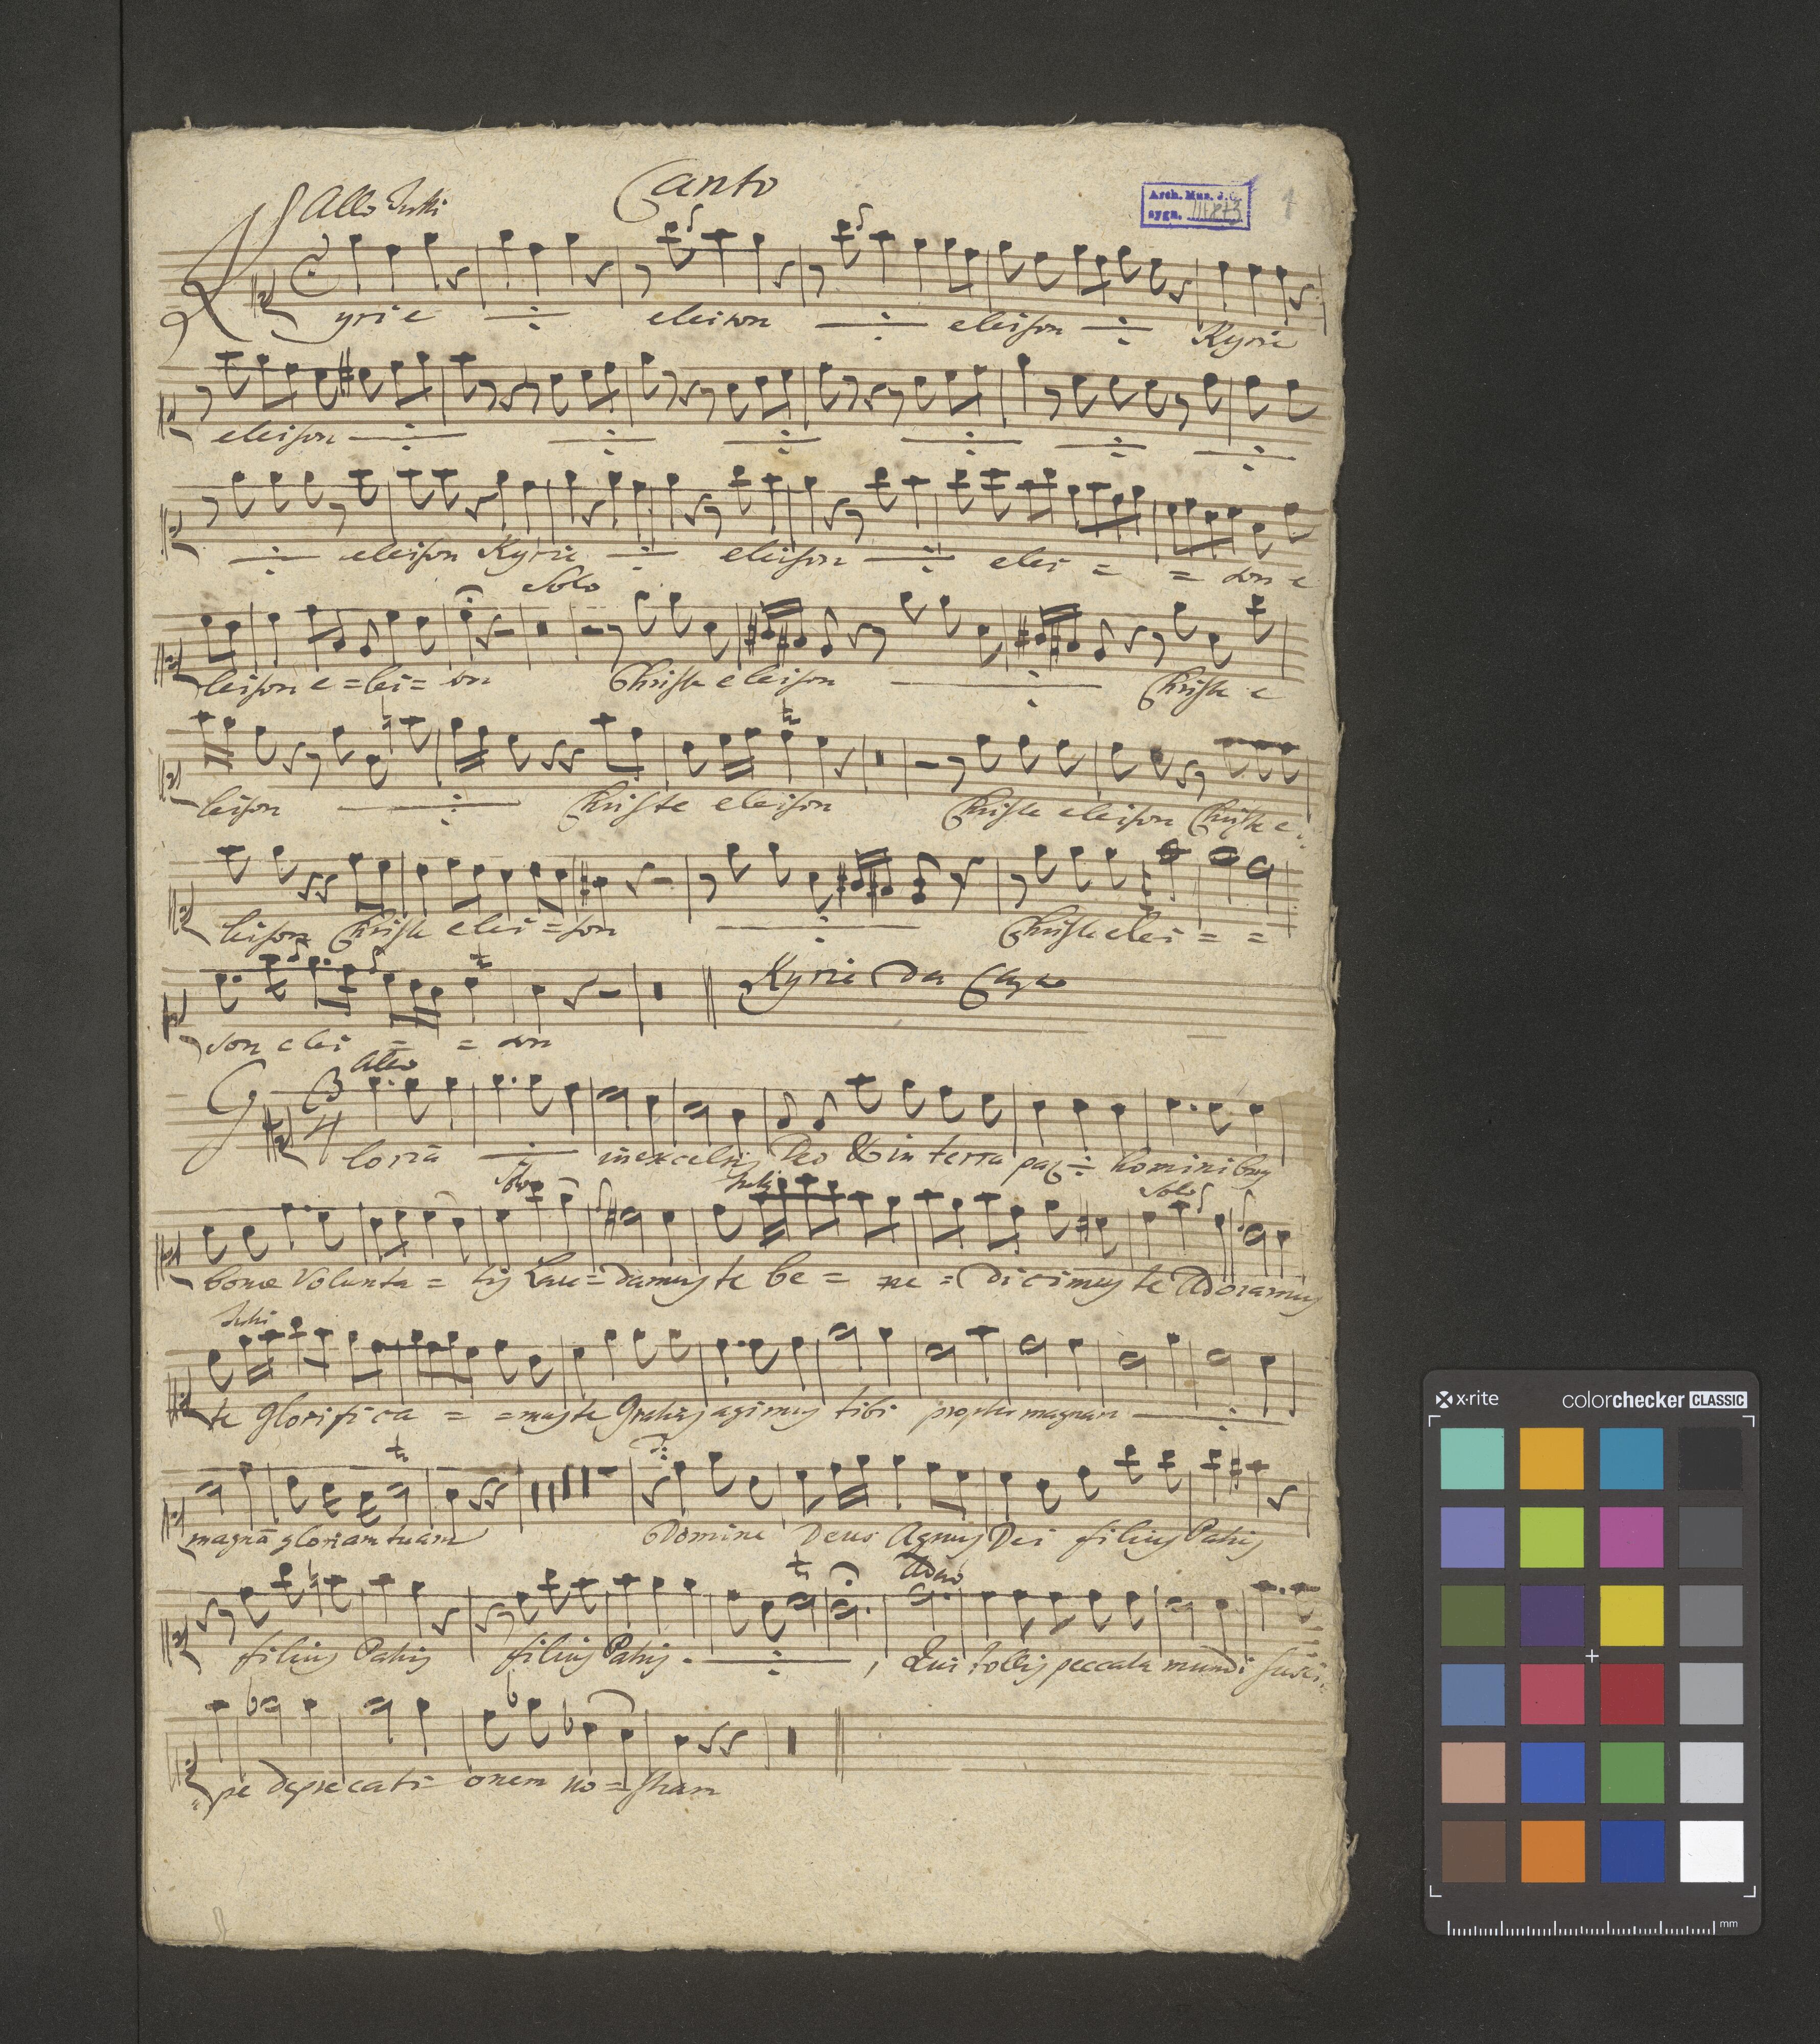 Canto
Allo Tutti
Arch. Mus. J. G.
sygn. III 873
1
Kyrie ÷ eleison ÷ eleison ÷ Kyrie
eleison ÷ ÷ ÷ ÷ ÷ ÷
÷ eleison Kyrie ÷ eleison ÷ elei = = son e
Solo
leison e = lei = son Christe eleison ÷ Christe e
leison ÷ Christe eleison Christe eleison Christe e
leison Christe elei = son ÷ Christe elei = =
Kyrie Da Capo
son elei = = son
Allo
3 4
Gloria ÷ in excelsis Deo & in terra pax ÷ hominibus
Solo Tutti Solo
bonæ Volunta = tis Lau = damus te be = ne = dicimus te Adoramus
Tutti
te glorifica = = mus te Gratias agimus tibi propter magnam ÷
magnā gloriam tuam Domine Deus Agnus Dei filius Patris
Adgio
filius Patris filius Patris ÷ Qui tollis peccata mundi susci
= pe deprecati onem no = stram
x-rite colorchecker CLASSIC
mm